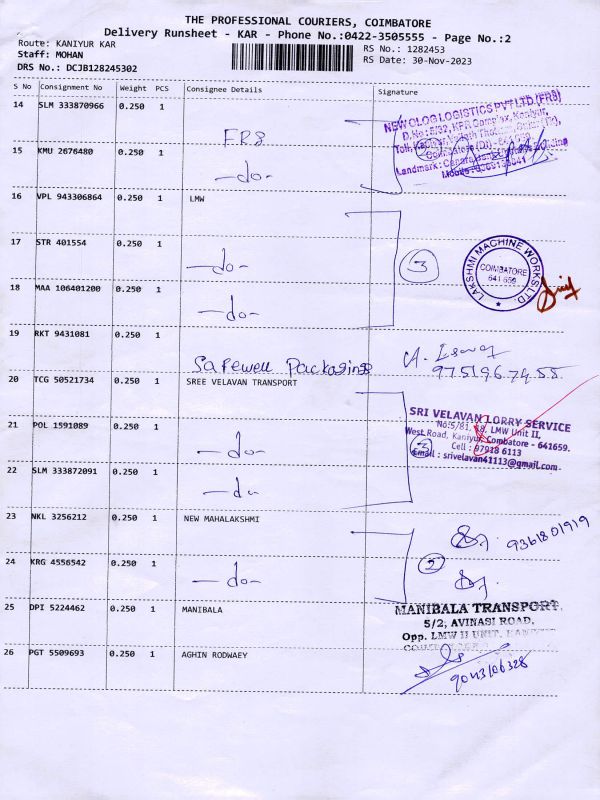 THE PROFESSIONAL COURIERS, COIMBATORE
Delivery Runsheet - KAR - Phone No.:0422-3505555 - Page No.:2
Route: KANIYUR KAR
RS No.: 1282453
Staff: MOHAN
RS Date: 30-Nov-2023
DRS No.: DCJB128245302
S No Consignment No Weight PCS Consignee Details Signature
14 SLM 333870966 0.250 1
F.R.S
NEWOLOG LOGISTICS PVT LTD (FRS)
15 KMU 2676480 0.250 1
-do-
16 VPL 943306864 0.250 1 LMW
17 STR 401554 0.250 1
-do-
3
LAKSHMI MACHINE WORKS LTD.
COIMBATORE
641 659
18 MAA 106401200 0.250 1
-do-
19 RKT 9431081 0.250 1
Safewell Packagings
9751967455
20 TCG 50521734 0.250 1 SREE VELAVAN TRANSPORT
SRI VELAVAN LORRY SERVICE
No:5/81, LMW Unit II,
West Road, Kaniyur, Coimbatore - 641659.
Cell : 97918 6113
Email : srivelavan41113@gmail.com
21 POL 1591089 0.250 1
-do-
22 SLM 333872091 0.250 1
-do-
23 NKL 3256212 0.250 1 NEW MAHALAKSHMI
9361801919
24 KRG 4556542 0.250 1
-do-
2
25 DPI 5224462 0.250 1 MANIBALA
MANIBALA TRANSPORT.
5/2, AVINASI ROAD,
Opp. LMW II UNIT.
26 PGT 5509693 0.250 1 AGHIN RODWAEY
9043106328